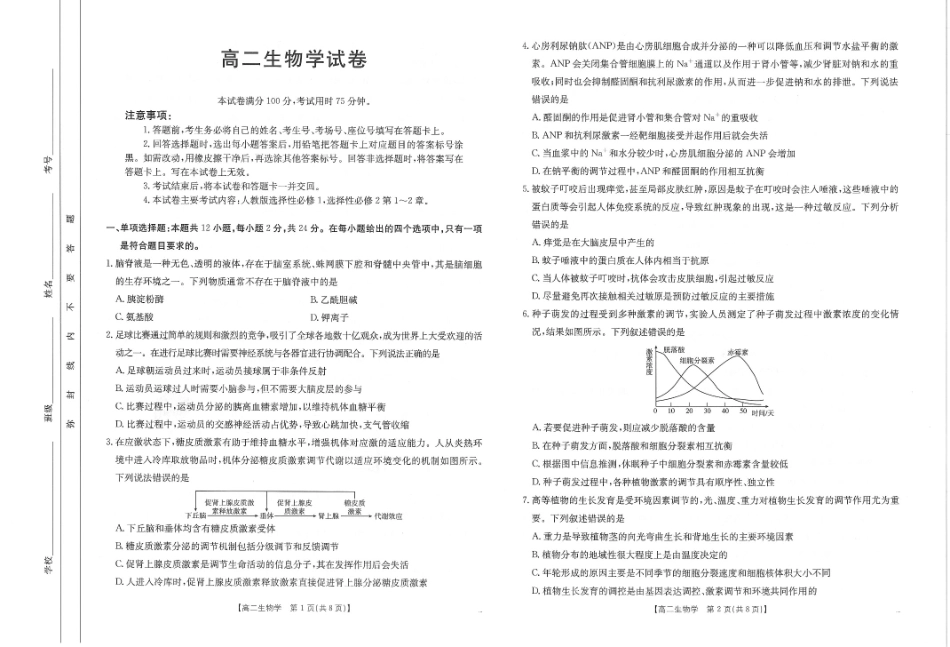 高二生物学试卷
本试卷满分100分,考试用时75分钟。
注意事项:
1.答题前,考生务必将自己的姓名、考生号、考场号、座位号填写在答题卡上。
2.回答选择题时,选出每小题答案后,用铅笔把答题卡上对应题目的答案标号涂
黑。如需改动,用橡皮擦干净后,再选涂其他答案标号。回答非选择题时,将答案写在
答题卡上。写在本试卷上无效。
3.考试结束后,将本试卷和答题卡一并交回。
4.本试卷主要考试内容:人教版选择性必修1,选择性必修2第1~2章。
一、单项选择题:本题共12小题,每小题2分,共24分。在每小题给出的四个选项中,只有一项
是符合题目要求的。
1.脑脊液是一种无色、透明的液体,存在于脑室系统、蛛网膜下腔和脊髓中央管中,其是脑细胞
的生存环境之一。下列物质通常不存在于脑脊液中的是
A.胰淀粉酶 B.乙酰胆碱
C.氨基酸 D.钾离子
2.足球比赛通过简单的规则和激烈的竞争,吸引了全球各地数十亿观众,成为世界上大受欢迎的活
动之一。在进行足球比赛时需要神经系统与各器官进行协调配合。下列说法正确的是
A.足球朝运动员过来时,运动员接球属于非条件反射
B.运动员运球过人时需要小脑参与,但不需要大脑皮层的参与
C.比赛过程中,运动员分泌的胰高血糖素增加,以维持机体血糖平衡
D.比赛过程中,运动员的交感神经活动占优势,导致心跳加快,支气管收缩
3.在应激状态下,糖皮质激素有助于维持血糖水平,增强机体对应激的适应能力。人从炎热环
境中进入冷库取放物品时,机体分泌糖皮质激素调节代谢以适应环境变化的机制如图所示。
下列说法错误的是
促肾上腺皮质激 促肾上腺皮 糖皮质
素释放激素 质激素 激素
下丘脑 垂体 肾上腺 代谢效应
A.下丘脑和垂体均含有糖皮质激素受体
B.糖皮质激素分泌的调节机制包括分级调节和反馈调节
C.促肾上腺皮质激素是调节生命活动的信息分子,其在发挥作用后会失活
D.人进入冷库时,促肾上腺皮质激素释放激素直接促进肾上腺分泌糖皮质激素
【高二生物学 第1页(共8页)】
4.心房利尿钠肽(ANP)是由心房肌细胞合成并分泌的一种可以降低血压和调节水盐平衡的激
素。ANP会关闭集合管细胞膜上的Na⁺通道以及作用于肾小管等,减少肾脏对钠和水的重
吸收;同时也会抑制醛固酮和抗利尿激素的作用,从而进一步促进钠和水的排泄。下列说法
错误的是
A.醛固酮的作用是促进肾小管和集合管对Na⁺的重吸收
B.ANP和抗利尿激素一经靶细胞接受并起作用后就会失活
C.当血浆中的Na⁺和水分较少时,心房肌细胞分泌的ANP会增加
D.在钠平衡的调节过程中,ANP和醛固酮的作用相互抗衡
5.被蚊子叮咬后出现痒觉,甚至局部皮肤红肿,原因是蚊子在叮咬时会注入唾液,这些唾液中的
蛋白质等会引起人体免疫系统的反应,导致红肿现象的出现,这是一种过敏反应。下列分析
错误的是
A.痒觉是在大脑皮层中产生的
B.蚊子唾液中的蛋白质在人体内相当于抗原
C.当人体被蚊子叮咬时,抗体会攻击皮肤细胞,引起过敏反应
D.尽量避免再次接触相关过敏原是预防过敏反应的主要措施
6.种子萌发的过程受到多种激素的调节,实验人员测定了种子萌发过程中激素浓度的变化情
况,结果如图所示。下列叙述错误的是
激素浓度
脱落酸
细胞分裂素
赤霉素
0 10 20 30 40 50 时间/天
A.若要促进种子萌发,则应减少脱落酸的含量
B.在种子萌发方面,脱落酸和细胞分裂素相互抗衡
C.根据图中信息推测,休眠种子中细胞分裂素和赤霉素含量较低
D.种子萌发过程中,各种植物激素的调节具有顺序性、独立性
7.高等植物的生长发育是受环境因素调节的,光、温度、重力对植物生长发育的调节作用尤为重
要。下列叙述错误的是
A.重力是导致植物茎的向光弯曲生长和背地生长的主要环境因素
B.植物分布的地域性很大程度上是由温度决定的
C.年轮形成的原因主要是不同季节的细胞分裂速度和细胞体积大小不同
D.植物生长发育的调控是由基因表达调控、激素调节和环境共同作用的
【高二生物学 第2页(共8页)】
学校
班级
姓名
考号
弥 封 线 内 不 要 答 题